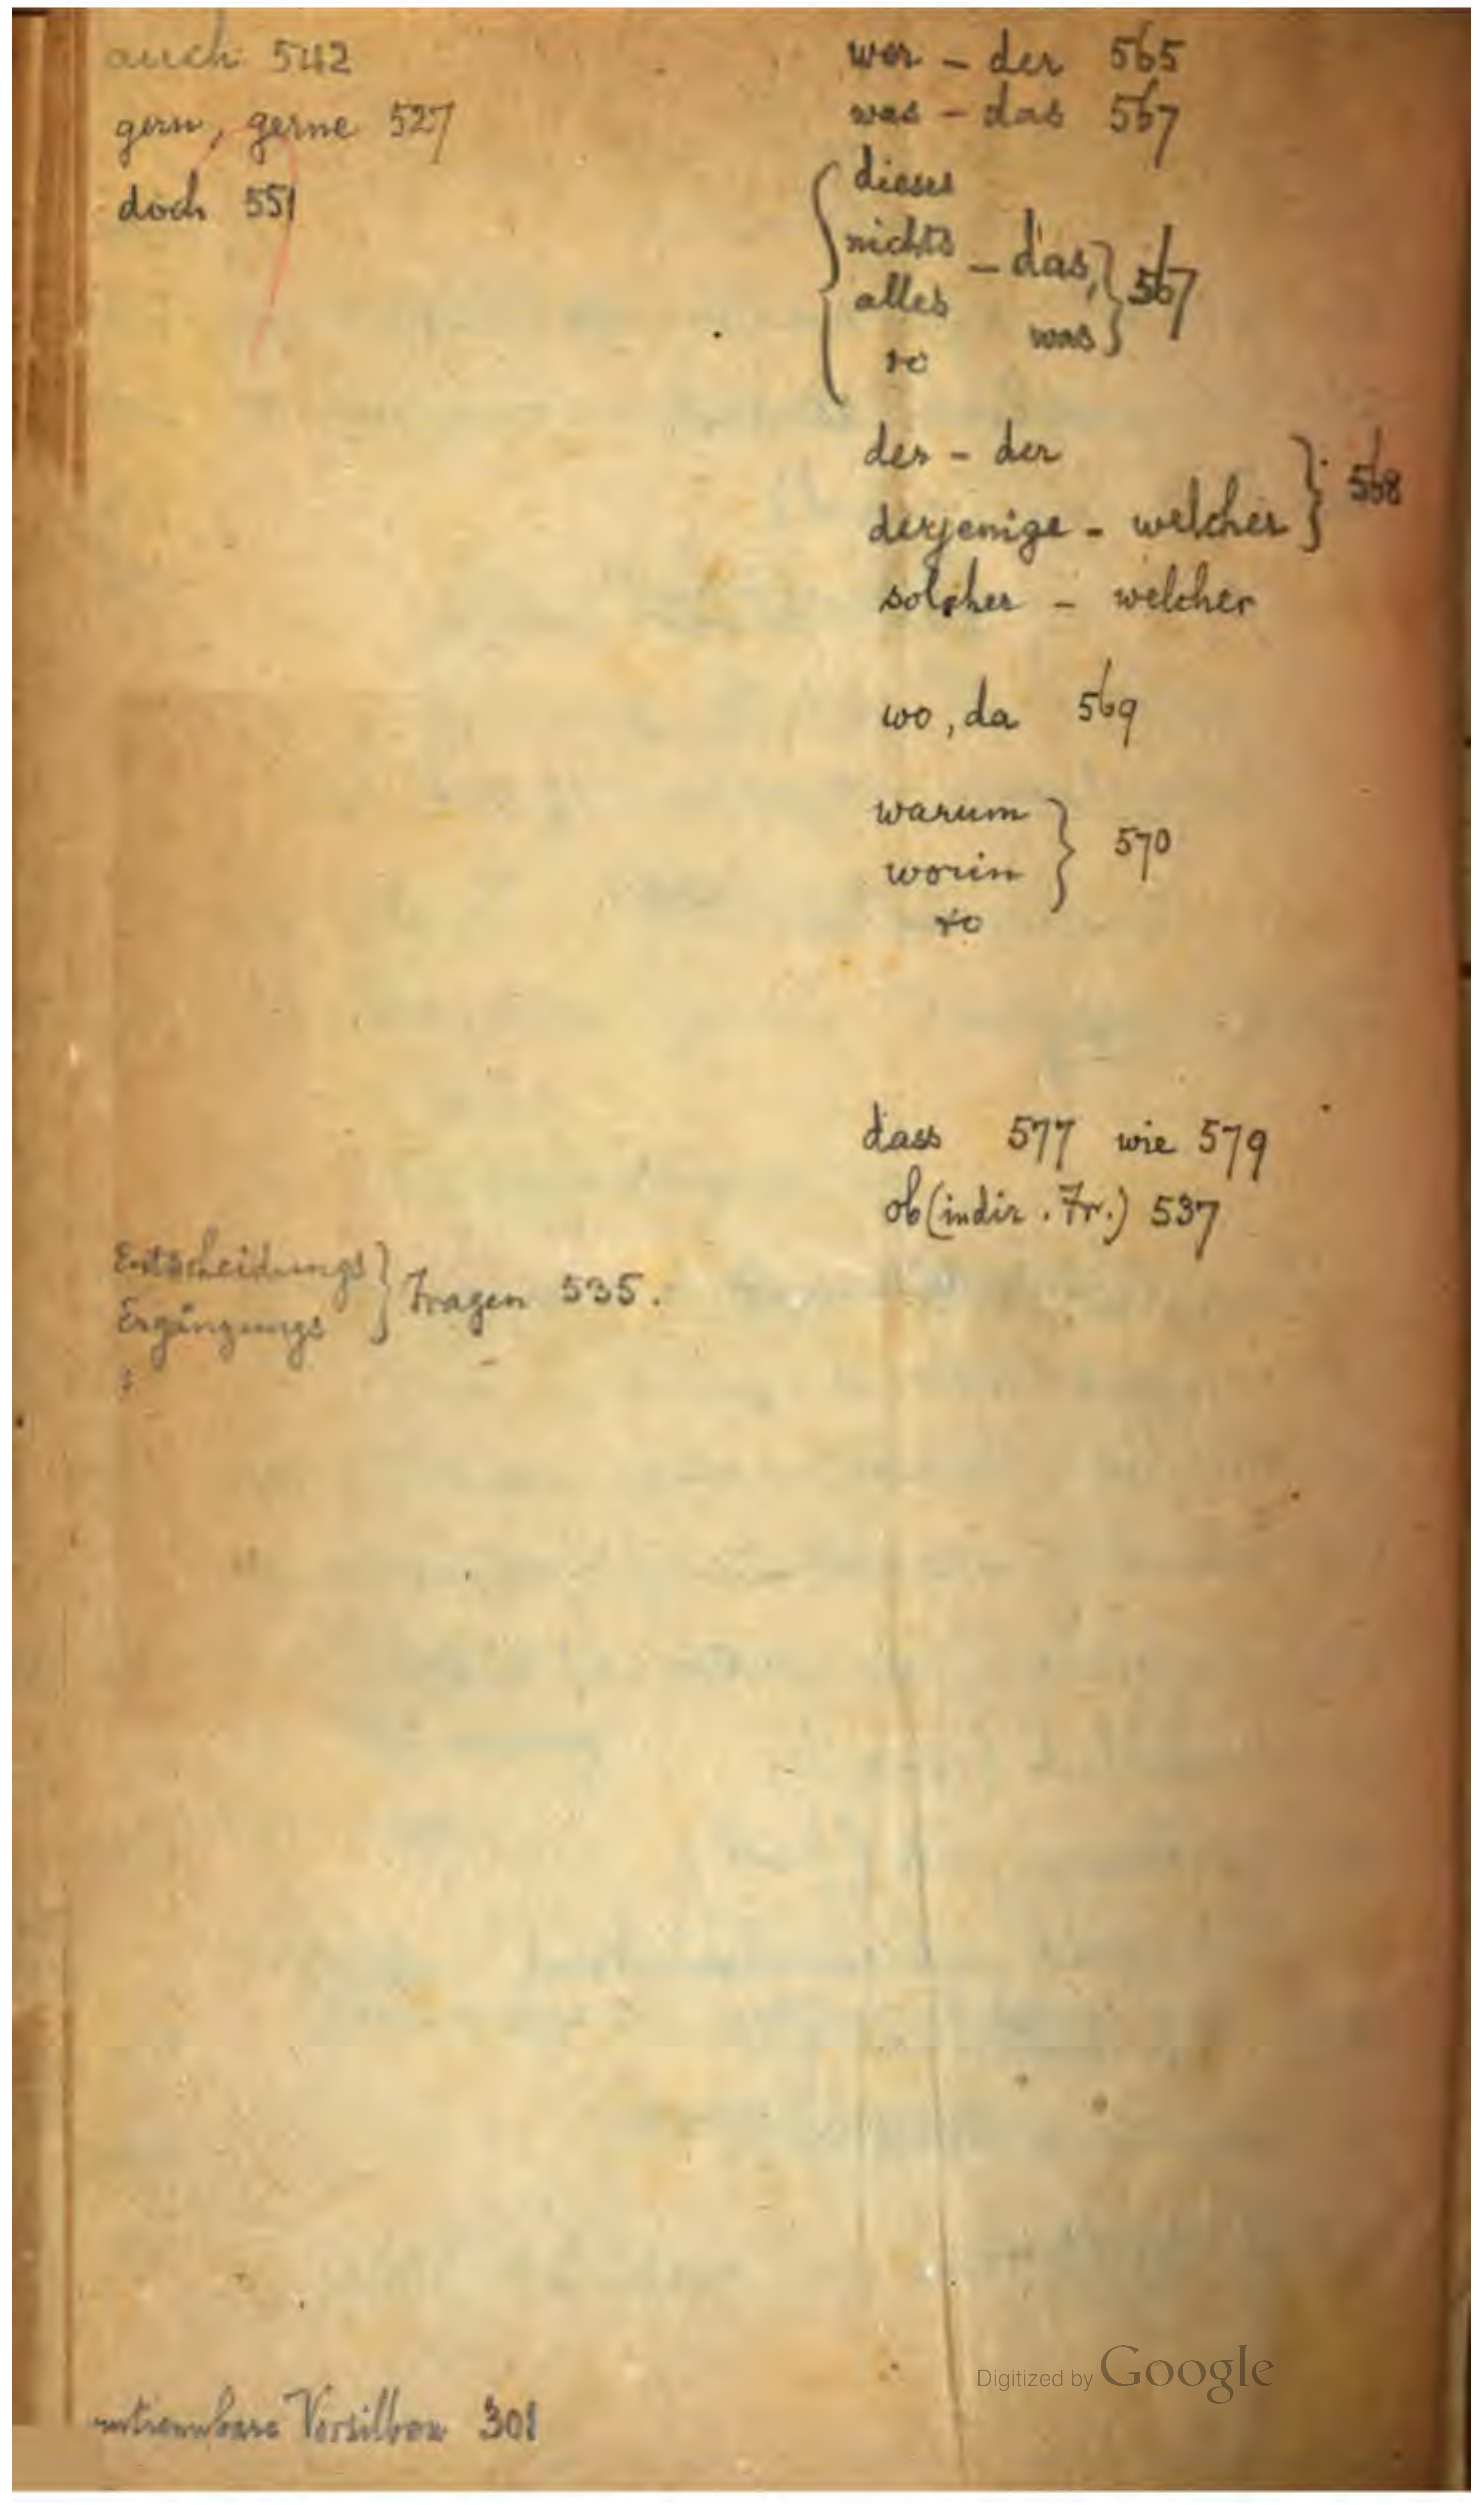 auch 542
gern, gerne 527
doch 551
wer - der 565
was - das 567
dieses
nichts - das, 567
alles
was
rc
der - der
derjenige - welcher } 568
solcher - welcher
wo, da 569
warum
worin } 570
rc
dass 577 wie 579
ob (indir. Fr.) 537
Entscheidungs
Ergänzungs } Fragen 535.
untrennbare Vorsilben 301
Digitized by Google